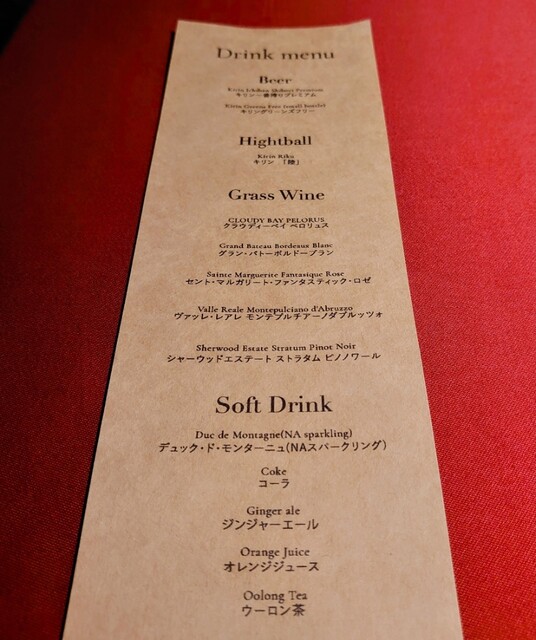 Drink menu
Beer
Kirin Ichiban Shibori Premium
キリン一番搾りプレミアム
Kirin Greens Free (small bottle)
キリングリーンズフリー
Hightball
Kirin Riku
キリン 「陸」
Grass Wine
CLOUDY BAY PELORUS
クラウディーベイ ペロリュス
Grand Bateau Bordeaus Blanc
グラン・バトーボルドーブラン
Sainte Marguerite Fantasique Rose
セント・マルガリート・ファンタスティック・ロゼ
Valle Reale Montepulciano d'Abruzzo
ヴァッレ・レアレ モンテプルチアーノダブルッツォ
Sherwood Estate Stratum Pinot Noir
シャーウッドエステート ストラタム ピノノワール
Soft Drink
Duc de Montagne(NA sparkling)
デュック・ド・モンターニュ(NAスパークリング)
Coke
コーラ
Ginger ale
ジンジャーエール
Orange Juice
オレンジジュース
Oolong Tea
ウーロン茶